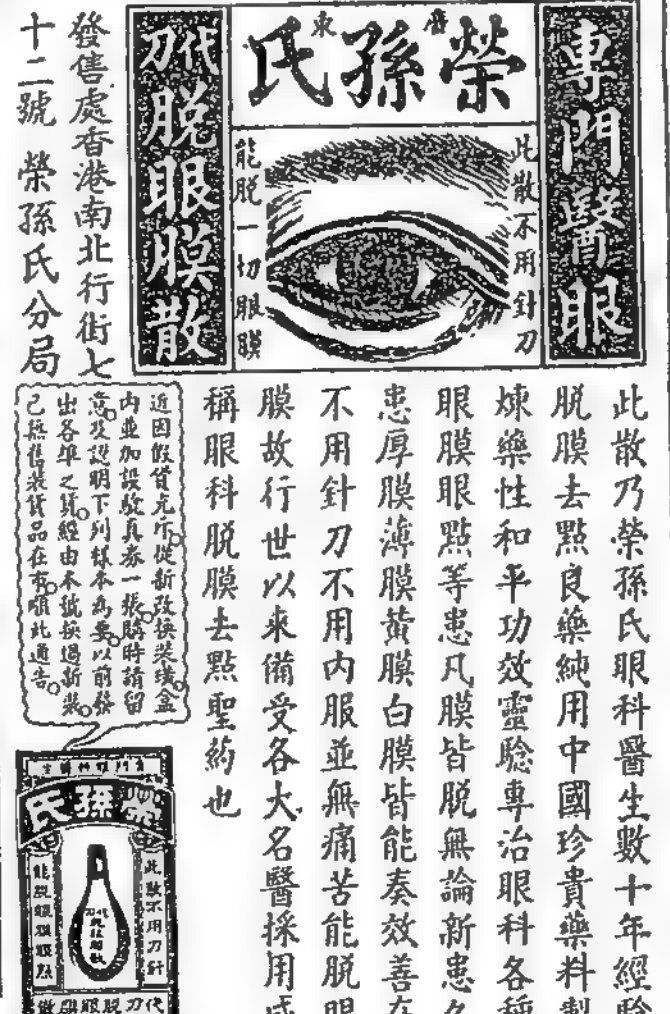 專門醫眼
廣東
榮孫氏
此散不用針刀
能脱一切眼膜
代刀脱眼膜散
發售處香港南北行街七
十二號 榮孫氏分局
此散乃榮孫氏眼科醫生數十年經驗
脱膜去點良藥純用中國珍貴藥料製
煉藥性和平功效靈驗專治眼科各種
眼膜眼點等患凡膜皆脱無論新患久
患厚膜薄膜黄膜白膜皆能奏效善在
不用針刀不用内服並無痛苦能脱眼
膜故行世以來備受各大名醫採用咸
稱眼科脱膜去點聖药也
近因假貨充斥。從新改換裝璜。盒
内並加設驗真券一張。購時請留
意。及認明下列樣本為要。以前發
出各埠之貨。經由本號換過新裝。
已無舊装貨品在市。順此通告。
專門眼科醫生
榮孫氏
此散不用刀針
能脱眼膜眼點
代刀脱眼膜散
代刀脱眼膜散